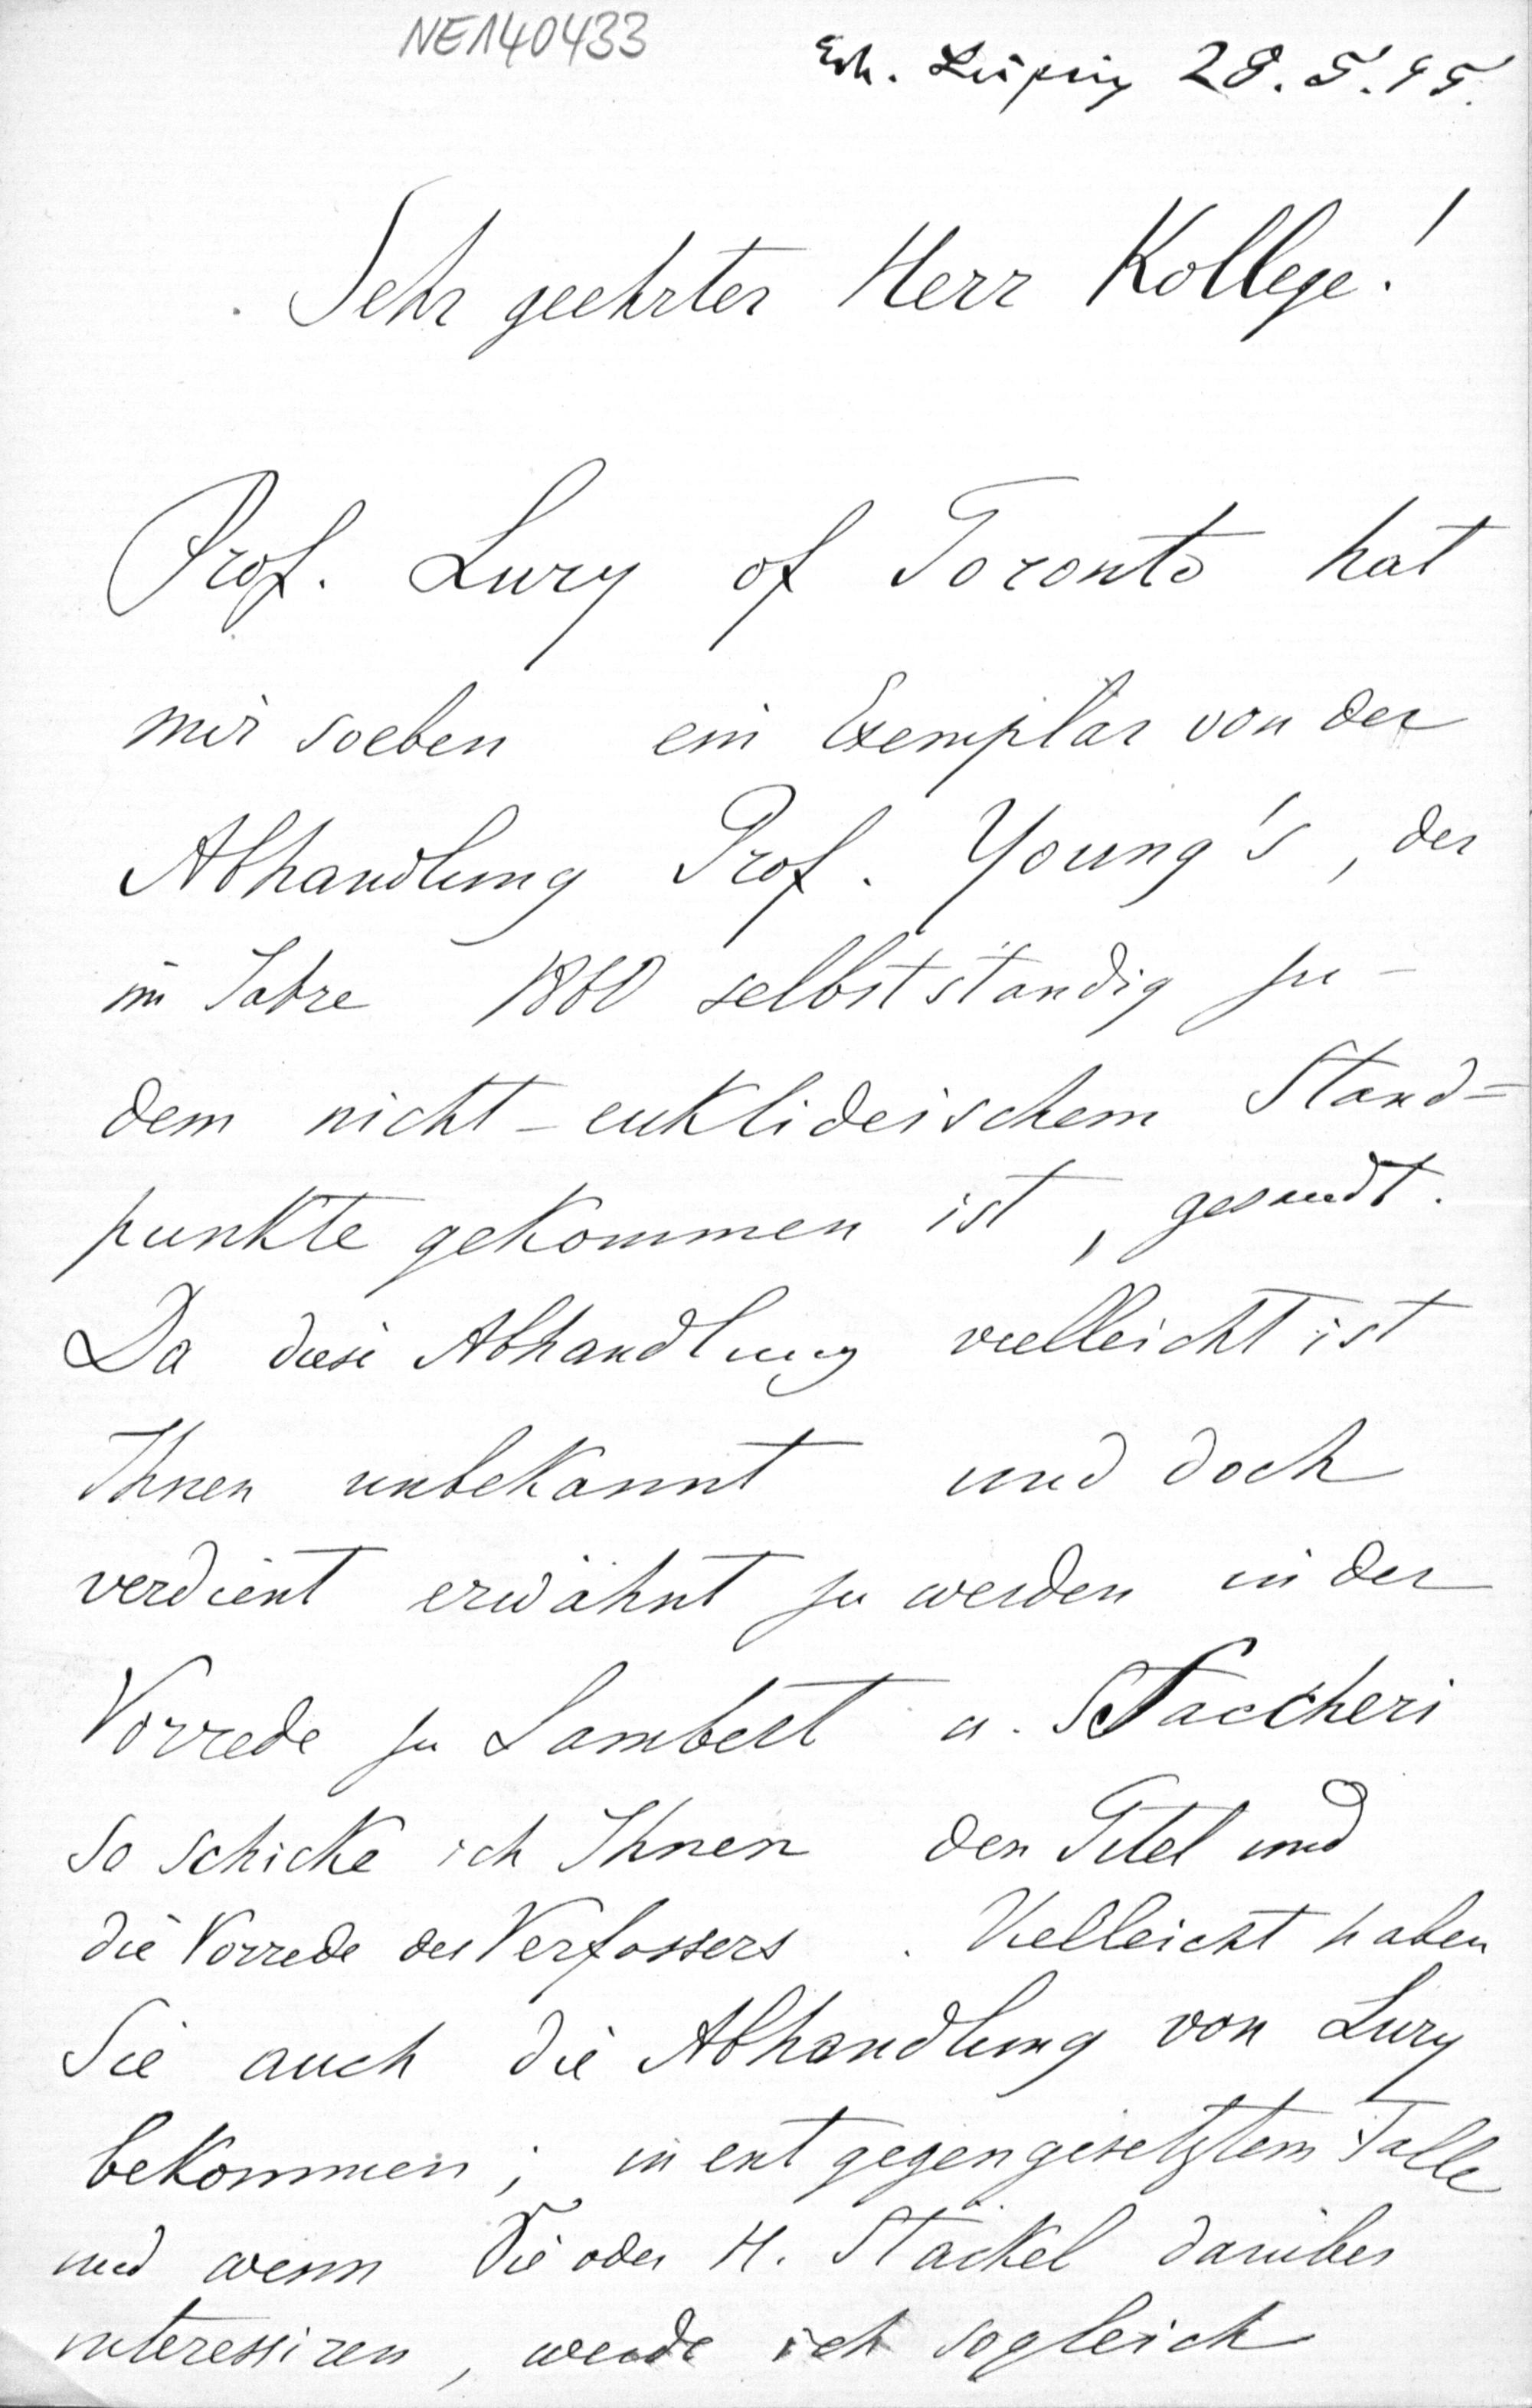 NE140433
Erh. Leipzig 28.5.95.
Sehr geehrter Herr Kollege!
Prof. Lury of Toronto hat
mir soeben ein Exemplar von der
Abhandlung Prof. Young's, der
im Jahre 1860 selbstständig zu-
dem nicht-euklideischem Stand=
punkte gekommen ist, gesandt.
Da diese Abhandlung vielleicht ist
Ihnen unbekannt und doch
verdient erwähnt zu werden in der
Vorrede zu Lambert u. Saccheri
so schicke ich Ihnen den Titel und
die Vorrede des Verfassers. Vielleicht haben
Sie auch die Abhandlung von Lury
bekommen; in entgegengesetztem Falle
und wenn Sie oder H. Stäckel darüber
interessiren, werde ich sogleich